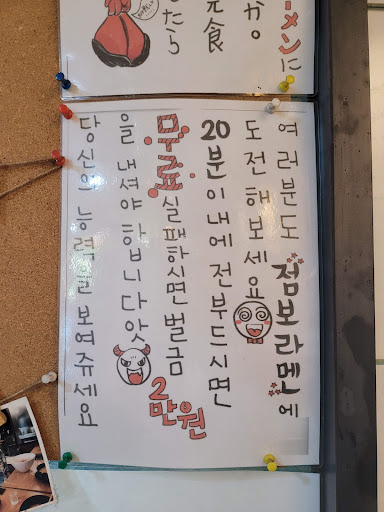 ーメンに
か。
完食
たら
여러분도 점보라멘에
도전해보세요
20분이내에 전부드시면
무료 실패하시면 벌금 2만원
을 내셔야 합니다앗
당신의 능력을 보여쥬세요